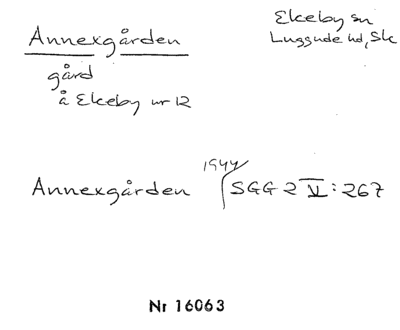 Annexgården
gård
å Ekeby nr 12
Ekeby sn
Luggude hd, Sk
Annexgården 1944 SGG 2 V: 267
Nr 16063